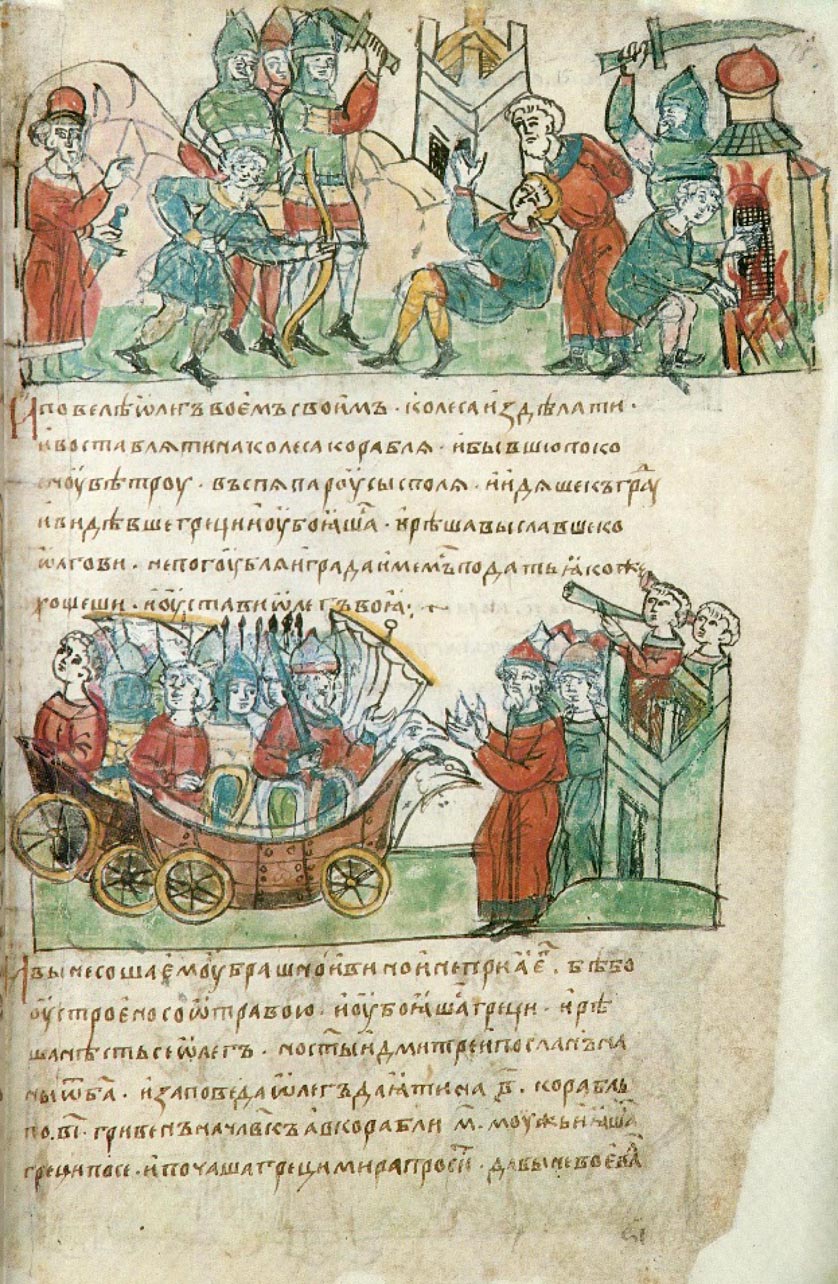 И повелѣ ѡлегъ воемъ своимъ · колеса издѣлати ·
и воставляти на колеса корабля · и бывшю поко
сноу вѣтроу · въспя пароусы с поля · и идяше къ градꙋ
и видѣвше греци и оубоѧшас̑ · и рѣша выславше ко
ѡлгови · не погоубляи града имемъ подать ꙗко ж
хощеши · и оустави ѡлегъ воꙗ ·
И вынесоша емоу брашно и вино и не приꙗ ег · бѣ бо
оустроено со ѡтравою · и оубоѧшас̑ греци · и рѣ
ша нѣсть се ѡлегъ · но ст҃ыи дмитреи посланъ на
ны ѿ б҃а · и заповеда ѡлегъ даꙗти на в҃ · корабль
по · в҃і · гривенъ на чл҃вкъ а в корабли м҃ · моужь и ꙗшас̑
греци по се · и почаша греци мира просити · дабы не воевал